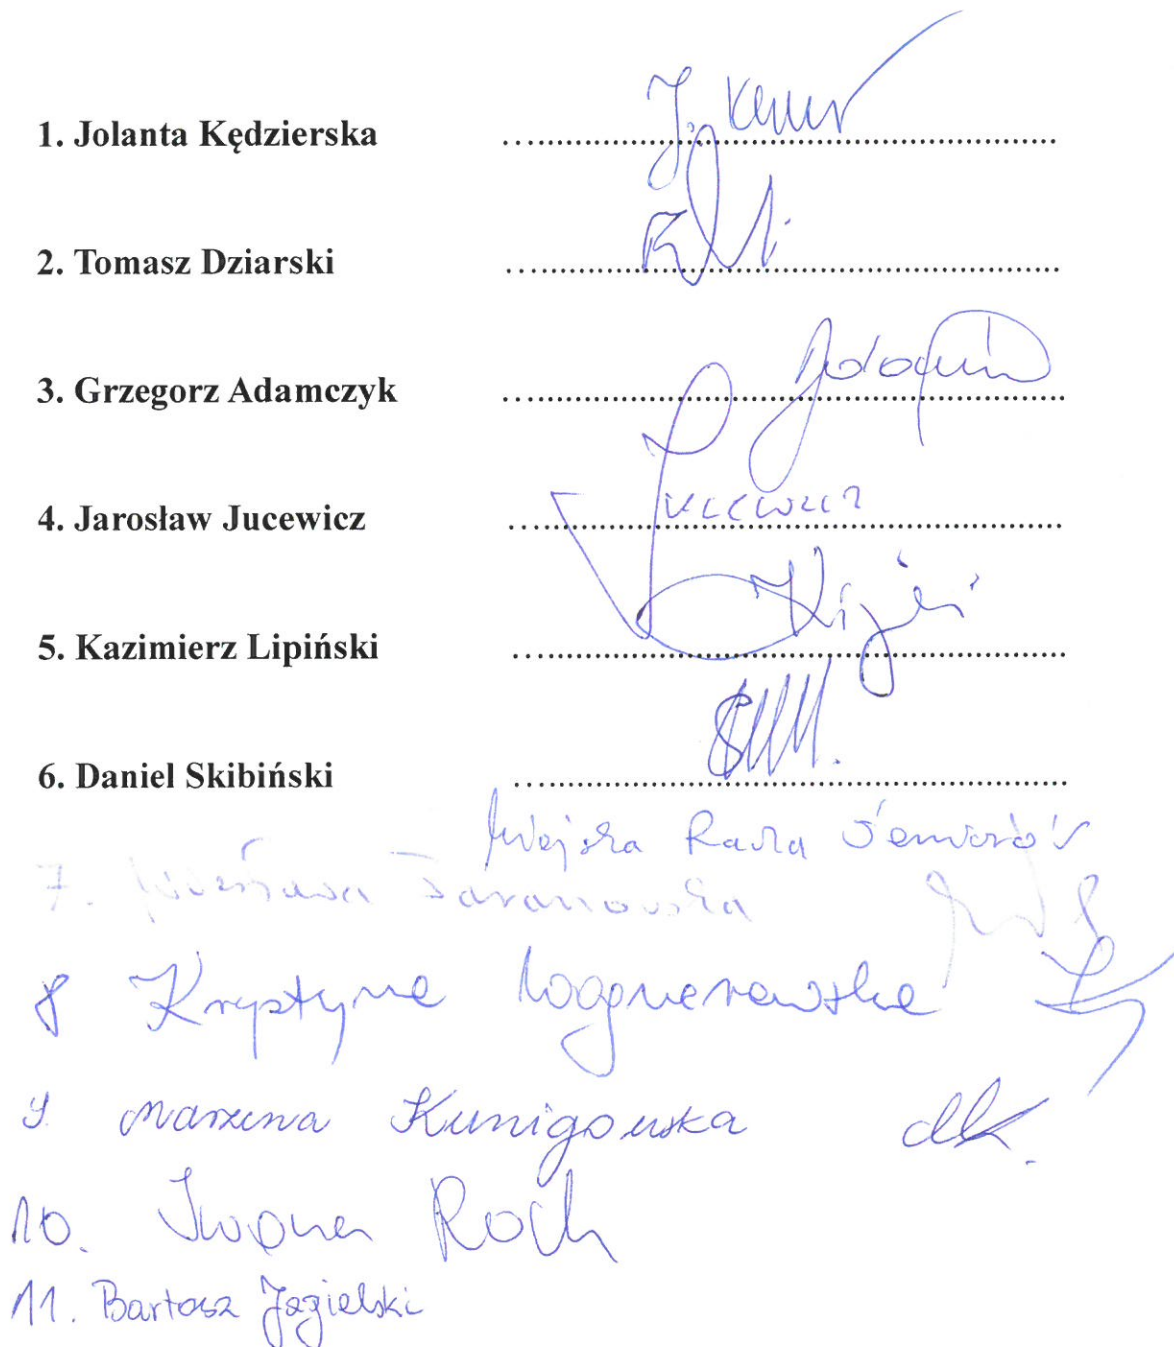 1. Jolanta Kędzierska ....................
2. Tomasz Dziarski ....................
3. Grzegorz Adamczyk ....................
4. Jarosław Jucewicz .................... Jucewicz
5. Kazimierz Lipiński ....................
6. Daniel Skibiński ....................
Miejska Rada Seniorów
7.
8 Krystyna
9. Marzena Kunigowska
10. Iwona Roch
11. Bartosz Jagielski